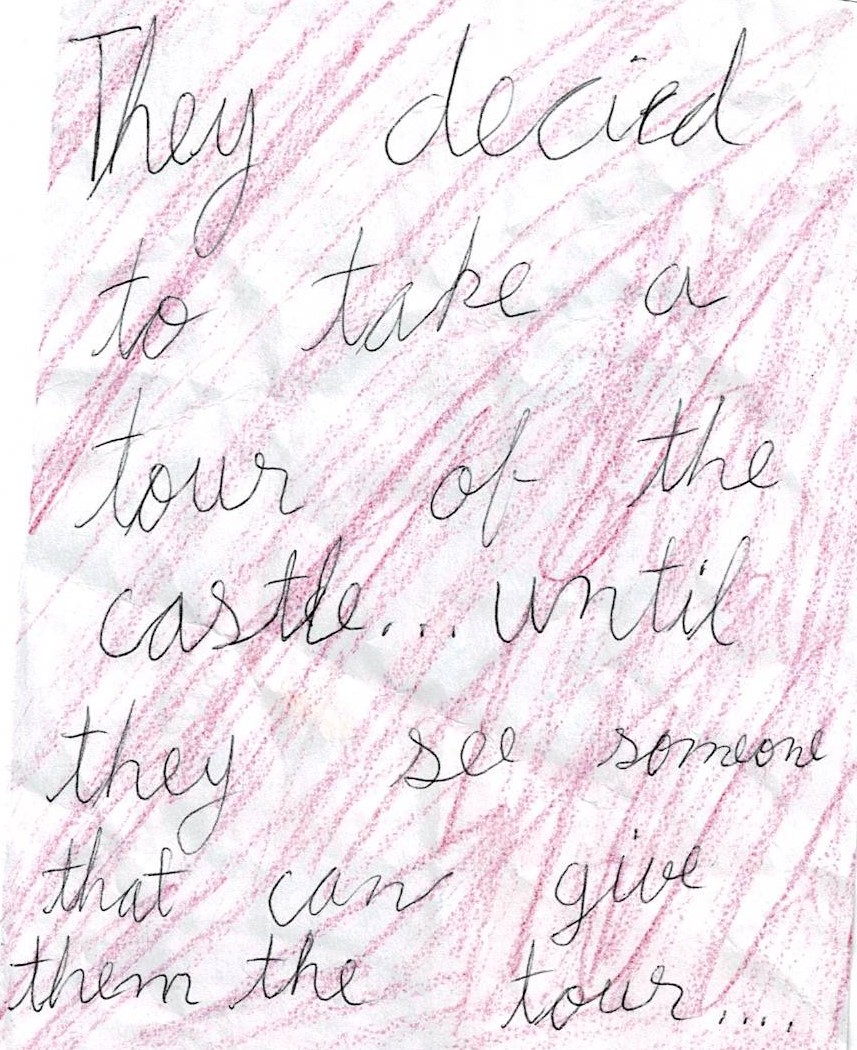 They decied
to take a
tour of the
castle...until
they see someone
that can give
them the tour....